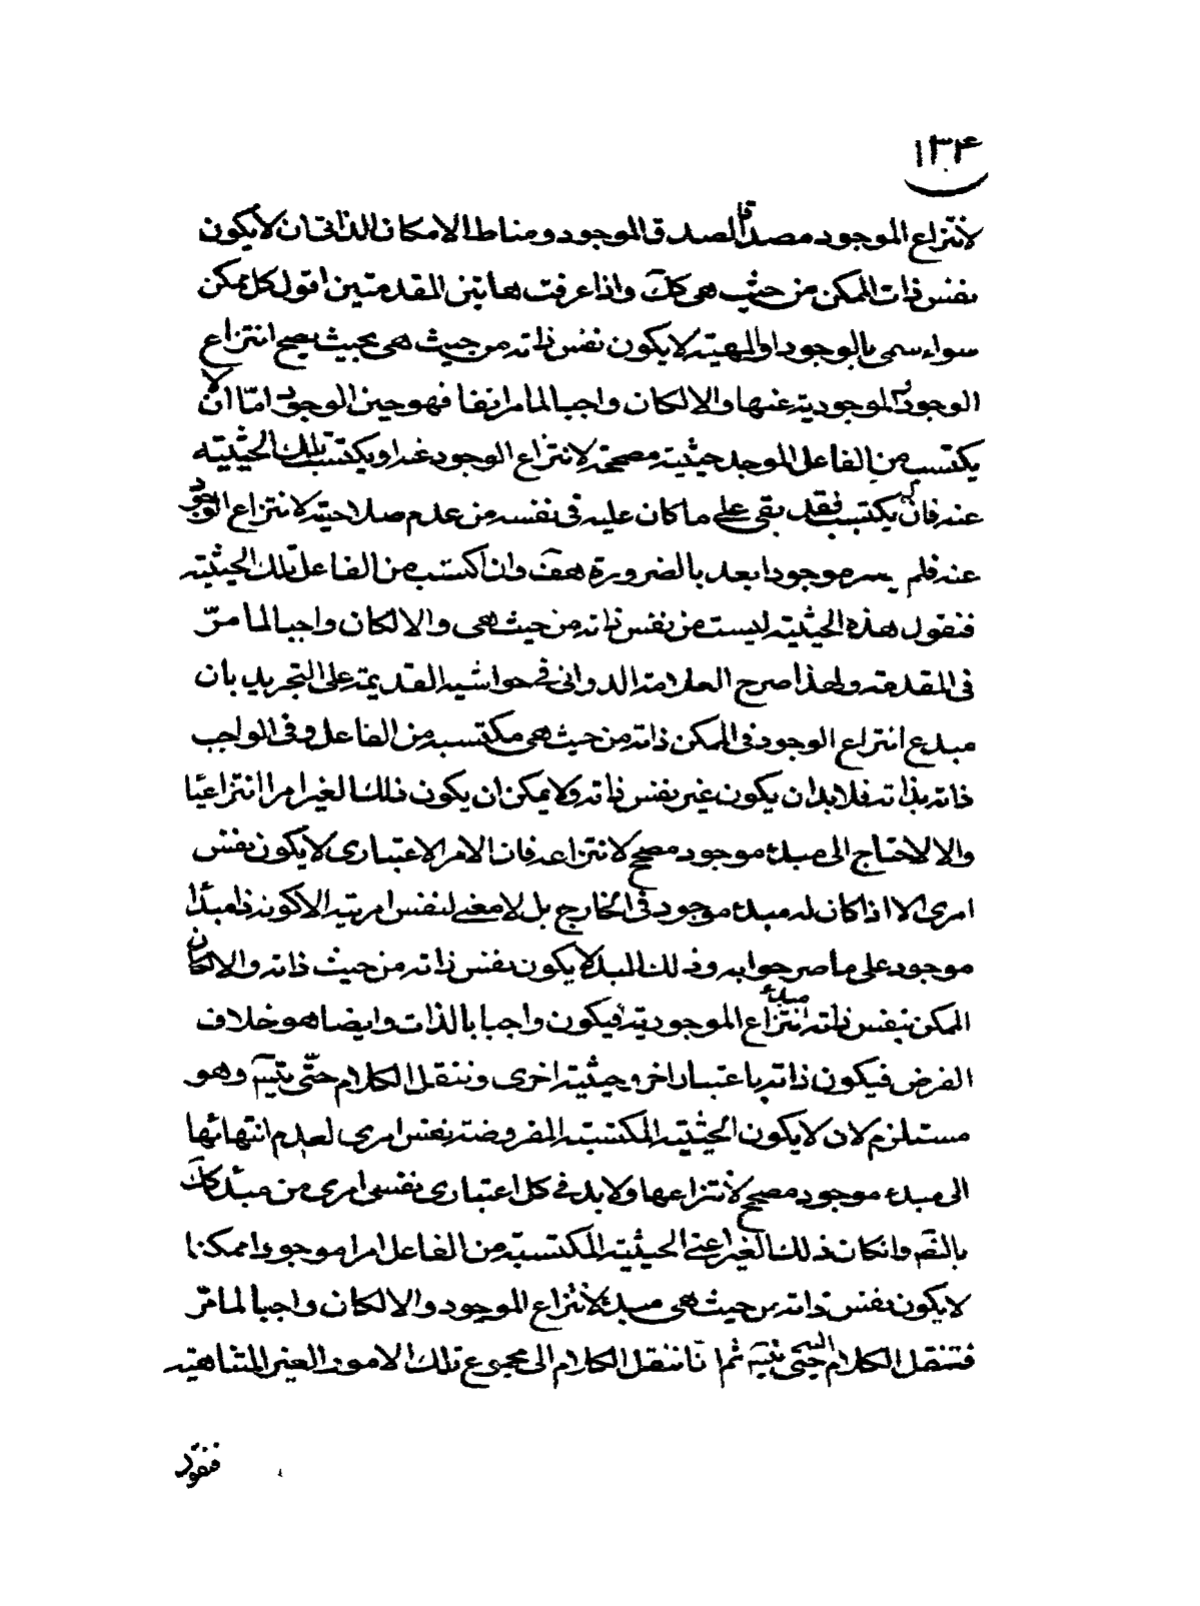 ۱۳۴
لانتزاع الموجود مصداقا لصدق الموجود ومناط الامكان الذاتى ان لا يكون
نفس ذات الممكن من حيث هى كك واذا عرفت هاتين المقدمتين اقول كل ممكن
سواء سمى بالوجود او المهية لا يكون نفس ذاته من حيث هى بحيث يصح انتزاع
الوجود الموجودية عنها والا لكان واجبا لما مر انفا فهو حين الوجود اما ان لا
يكتسب من الفاعل الموجد حيثية مصححة لانتزاع الوجود عنه او يكتسب تلك الحيثية
عنه فان لم يكتسب فقد بقى على ما كان عليه فى نفسه من عدم صلاحية لانتزاع الوجود
عنه فلم يسر موجودا بعد بالضرورة هف وان اكتسب من الفاعل تلك الحيثية
فنقول هذه الحيثية ليست من نفس ذاته من حيث هى والا لكان واجبا لما مرّ
فى المقدمة ولهذا صرح العلامة الدوانى فى حواشيه القديمة على التجريد بان
مبدء انتزاع الوجود فى الممكن ذاته من حيث هى مكتسبة من الفاعل وفى الواجب
ذاته بذاته فلا بد ان يكون غير نفس ذاته ولا يمكن ان يكون ذلك الغير امرا انتزاعيا
والا لاحتاج الى مبدء موجود مصحح لانتزاعه فان الامر الاعتبارى لا يكون نفس
امرى الا اذا كان له مبدء موجود فى الخارج بل لا معنى لنفس امريته الا كونه ذا مبدا
موجود على ما صرحوا به وذلك المبدء لا يكون نفس ذاته من حيث ذاته والا لكان
الممكن بنفس ذاته مبدء انتزاع الموجودية فيكون واجبا بالذات وايضا هو خلاف
الفرض فيكون ذاته باعتبار اخر وحيثية اخرى وننقل الكلام حتّى يتسه وهو
مستلزم لان لا يكون الحيثية المكتسبة المفروضة نفس امرى لعدم انتهائها
الى مبدء موجود مصحح لانتزاعها ولا بد فى كل اعتبارى نفسى امرى من مبدء كك
بالضه وان كان ذلك الغير اعنى الحيثية المكتسبة من الفاعل امرا موجودا ممكنا
لا يكون نفس ذاته من حيث هى مبدء لانتزاع الموجود والا لكان واجبا لما مرّ
فننقل الكلام اليه حتى يتسه ثم انا ننقل الكلام الى مجموع تلك الامور الغير المتناهية
فنقول